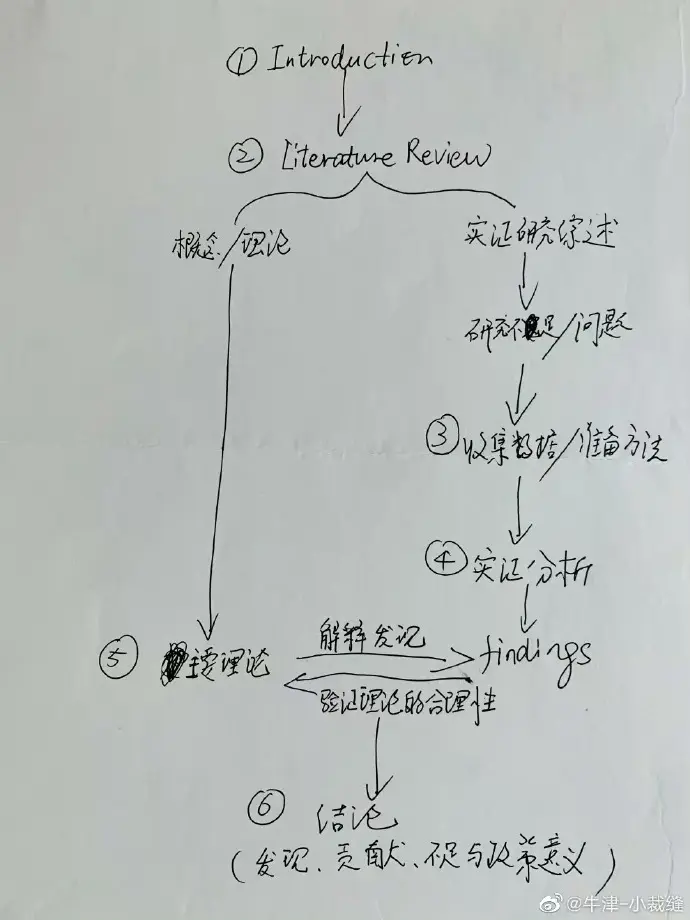 ① Introduction
② Literature Review
概念/理论
实证研究综述
研究不足/问题
③ 收集数据/准备方法
④ 实证分析
⑤ 主要理论
解释发现
findings
验证理论的合理性
⑥ 结论
(发现、贡献、不足与政策意义)
@牛津-小裁缝